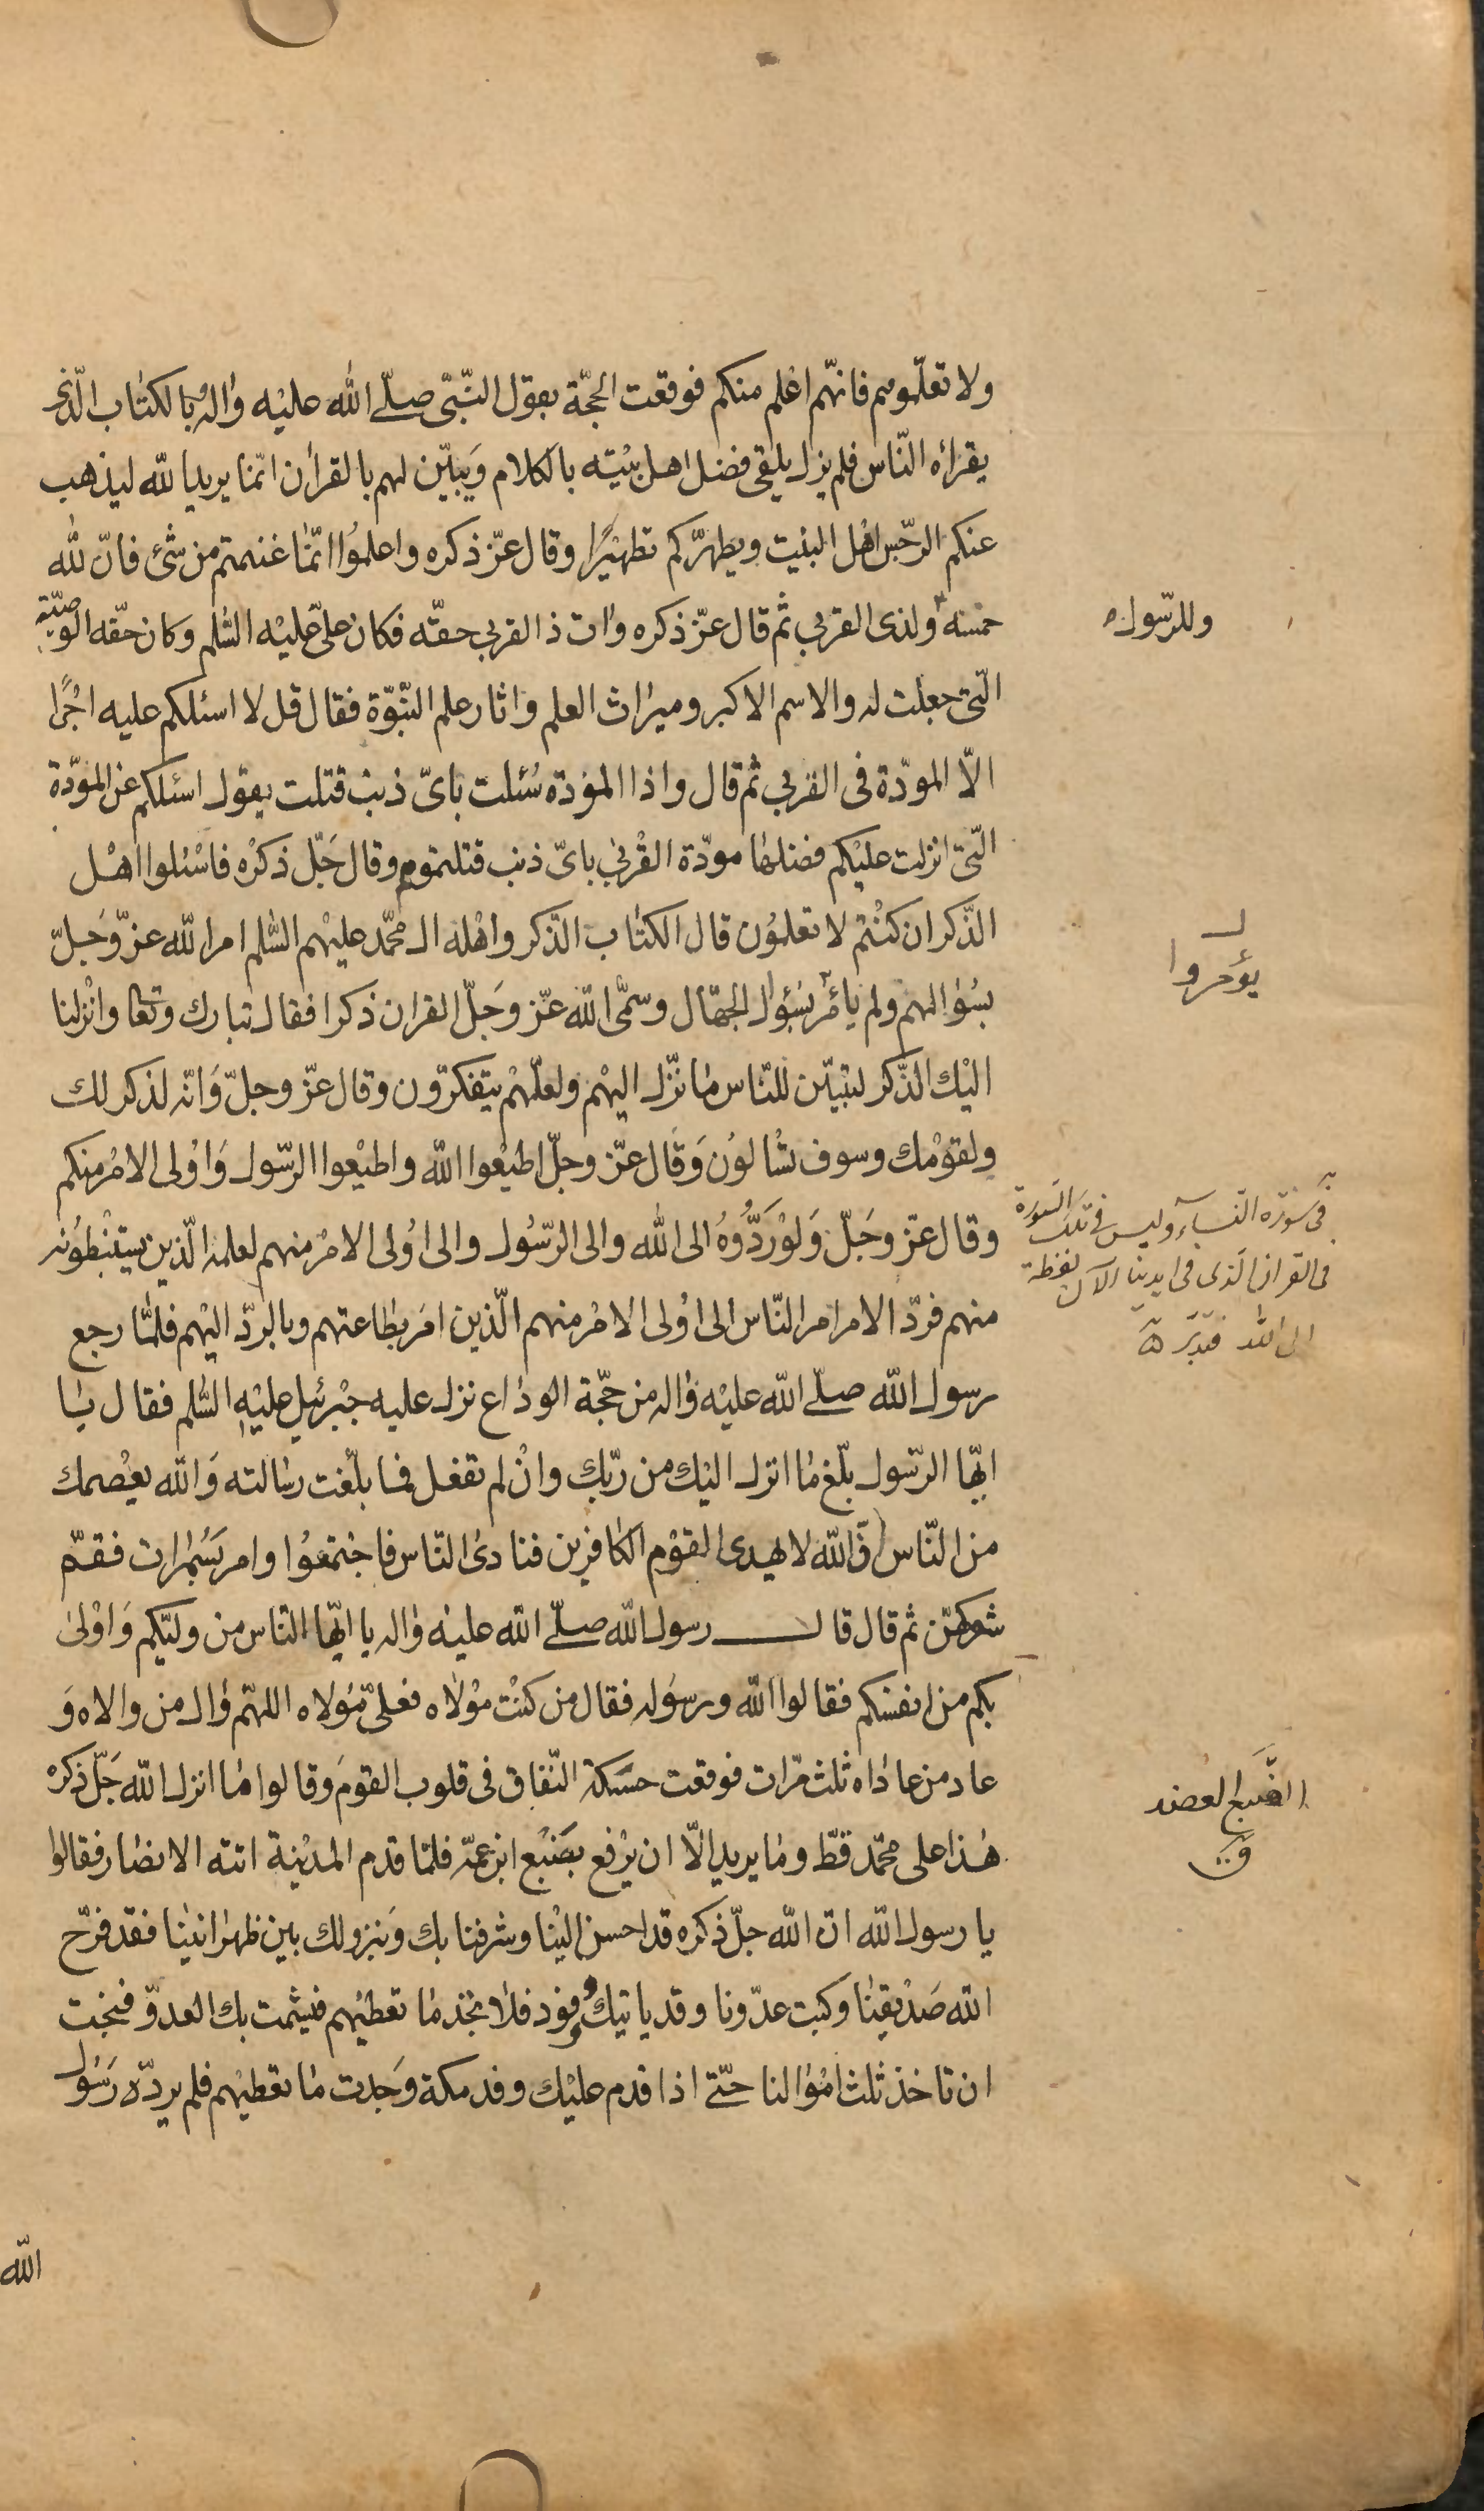 ولا تعلّموهم فانّهم اعلم منكم فوقعت الحجّة بقول النّبىّ صلّى الله عليه واله وبالكتاب الّذى
يقرأه النّاس فلم يزل يلقى فضل اهل بيته بالكلام ويبيّن لهم بالقرآن انّما يريد الله ليذهب
عنكم الرّجس اهل البيت ويطهّركم تطهيرًا وقال عزّ ذكره واعلموا انّما غنمتم من شئ فانّ لله
خمسه ولذى القربى ثم قال عزّ ذكره وات ذا القربى حقّه فكان علىّ عليه السّلم وكان حقّه الوصيّة
وللرّسول
الّتى جعلت له والاسم الاكبر وميراث العلم واثار علم النّبوّة فقال قل لا اسئلكم عليه اجرًا
الّا المودّة فى القربى ثم قال واذا الموؤدة سُئلت باىّ ذنب قتلت يقول اسئلكم عن المودّة
الّتى انزلت عليكم فضلها مودّة القربى باىّ ذنب قتلتموهم وقال جَلّ ذكره فاسْئلوا اهْل
الذّكر ان كنْتم لا تعلمون قال الكتاب الذّكر واهْله ال محمّد عليهم السّلم امر الله عزّ وَجلّ
بسُؤالهم ولم يأمر بسُؤال الجهّال وسمّى الله عزّ وجَلّ القران ذكرا فقال تبارك وتعا وانْزلنا
يؤمروا
اليْك الذّكر لتبيّن للنّاس ما نزّل اليهْم ولعلّهمْ يتفكرّون وقال عزّ وجلّ وَانّه لذكر لك
ولقوْمك وسوف تسْألوُن وَقال عزّ وجلّ اطيْعوا الله واطيْعوا الرّسول وَاوُلى الامْر منكم
وقال عزّ وجَلّ وَلوْ رَدُّوُهُ الى الله والى الرّسُول والى اوُلى الامْر منهم لعلمه الّذين يستنْبطُونه
فى سورة النّساء وليس فى تلك السّورة
فى القران الّذى فى ايدينا الآن لفظة
الى الله فتدبّر
منهم فردّ الامر امر النّاس الى اوُلى الامْر منهم الّذين امَر بطاعتهم وبالردّ اليْهم فلمّا رجع
رسول الله صلّى الله عليْه واله من حجّة الوداع نزل عليه جبْرئيل عليْه السّلم فقال يا
ايّها الرّسول بلّغ ما انزل اليْك من ربّك وانْ لم تفعل فما بلّغت رسالته وَالله يعْصمك
من النّاس انّ الله لا يهدى القوْم الكافرين فنادى النّاس فاجْتمعُوا وامر بسَمُرات فقمّ
شوكهنّ ثم قال قال رسول الله صلّى الله عليْه واله يا ايّها النّاس من وليّكم وَاوْلى
بكم من انفسكم فقالوا الله ورسوَله فقال من كنْت موْلاه فعلىّ مَوْلاه اللهّم وال من والاه وَ
عاد من عاداه ثلث مرّات فوقعت حسَكة النّفاق فى قلوب القومَ وقالوا ما انزل الله جَلّ ذكره
هذا على محمّد قطّ وما يريد الّا ان يرْفع بضَبْع ابن عمّه فلمّا قدم المديْنة اتته الانصار فقالوا
الضَّبع العضد
ق
يا رسول الله انّ الله جلّ ذكره قد احسن اليْنا وشرفنا بك وَبنزولك بين ظهرانيْنا فقد فرّح
الله صَديْقنا وكبت عدّونا وقد ياتيك وفود فلا تجد ما تعطيْهم فيشمت بك العدوّ فنحبّ
ان تاخذ ثلث امْوالنا حتّى اذا قدم عليْك وفد مكة وَجدت ما تعطيْهم فلم يردّه رَسُول
الله